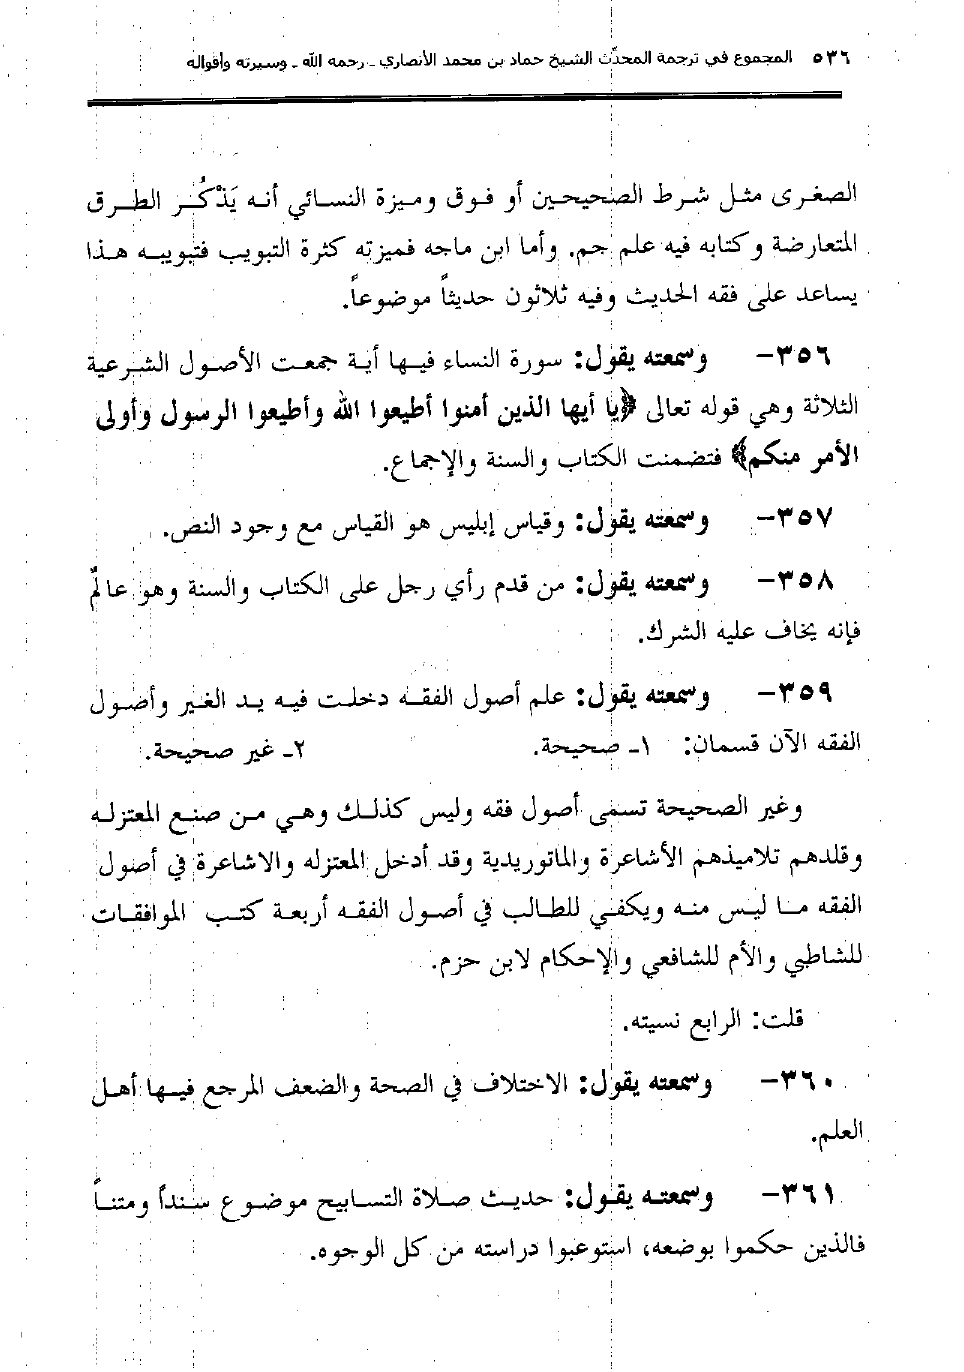 ٥٣٦ المجموع في ترجمة المحدّث الشيخ حماد بن محمد الأنصاري ـ رحمه الله ـ وسيرته وأقواله
الصغرى مثل شرط الصحيحين أو فوق وميزة النسائي أنه يَذْكُر الطرق
المتعارضة وكتابه فيه علم جم. وأما ابن ماجه فميزته كثرة التبويب فتبويبه هذا
يساعد على فقه الحديث وفيه ثلاثون حديثاً موضوعاً.
٣٥٦- وسمعته يقول: سورة النساء فيها أية جمعت الأصول الشرعية
الثلاثة وهي قوله تعالى ﴿يا أيها الذين أمنوا أطيعوا الله وأطيعوا الرسول وأولى
الأمر منكم﴾ فتضمنت الكتاب والسنة والإجماع.
٣٥٧- وسمعته يقول: وقياس إبليس هو القياس مع وجود النص.
٣٥٨- وسمعته يقول: من قدم رأي رجل على الكتاب والسنة وهو عالمٌ
فإنه يخاف عليه الشرك.
٣٥٩- وسمعته يقول: علم أصول الفقه دخلت فيه يد الغير وأصول
الفقه الآن قسمان: ١ـ صحيحة. ٢ـ غير صحيحة.
وغير الصحيحة تسمى أصول فقه وليس كذلك وهي من صنع المعتزله
وقلدهم تلاميذهم الأشاعرة والماتوريدية وقد أدخل المعتزله والاشاعرة في أصول
الفقه ما ليس منه ويكفي للطالب في أصول الفقه أربعة كتب الموافقات
للشاطبي والأم للشافعي والإحكام لابن حزم.
قلت: الرابع نسيته.
٣٦٠- وسمعته يقول: الاختلاف في الصحة والضعف المرجع فيها أهل
العلم.
٣٦١- وسمعته يقول: حديث صلاة التسابيح موضوع سنداً ومتناً
فالذين حكموا بوضعه، استوعبوا دراسته من كل الوجوه.